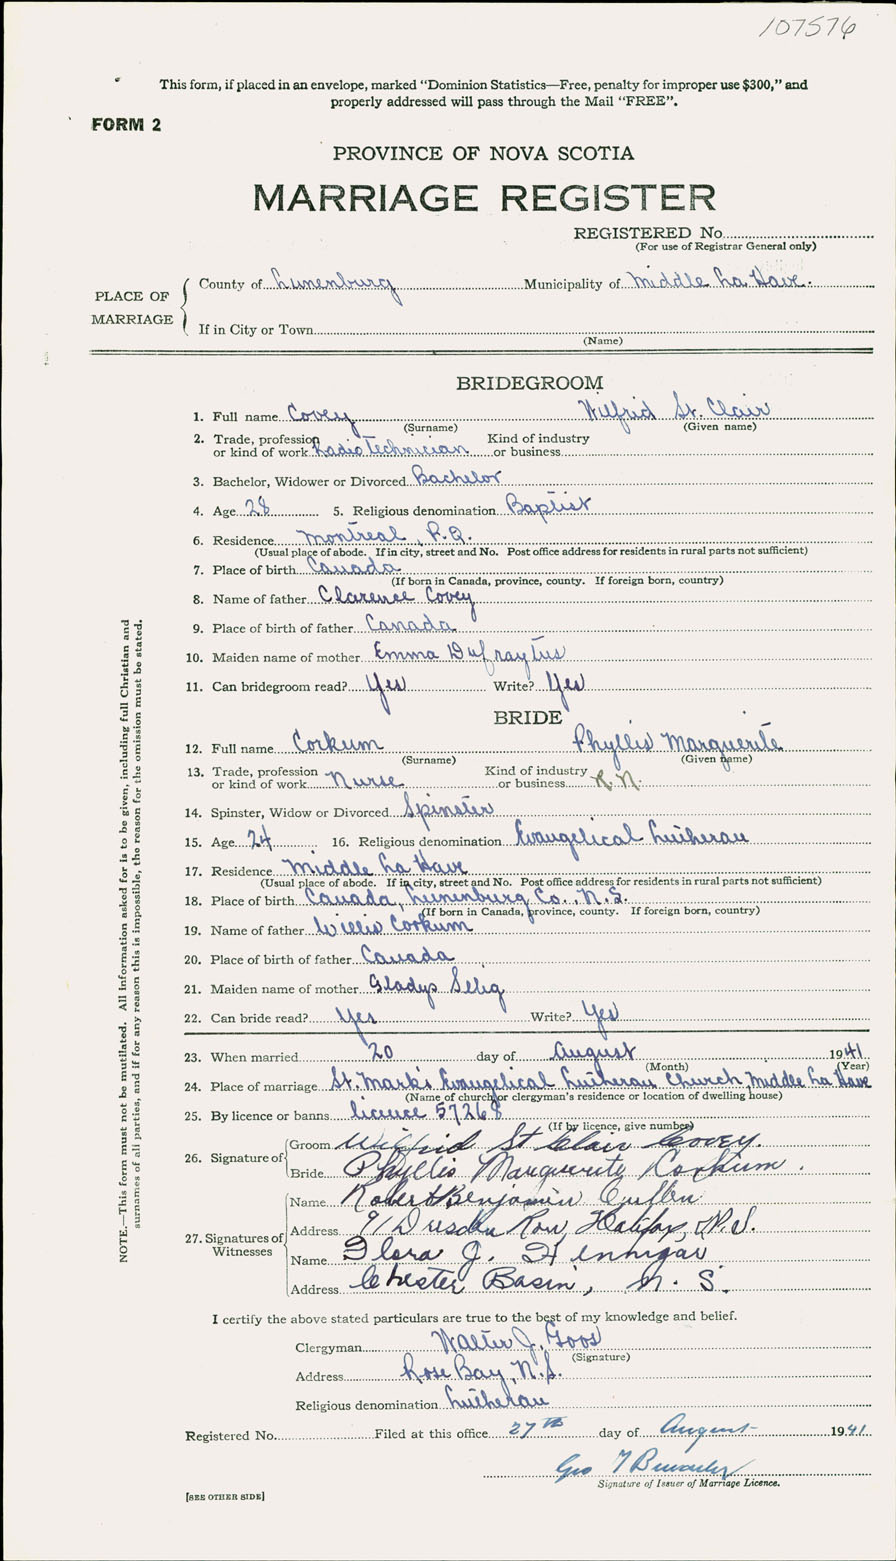 107576
This form, if placed in an envelope, marked “Dominion Statistics—Free, penalty for improper use $300,” and
properly addressed will pass through the Mail “FREE”.
FORM 2
PROVINCE OF NOVA SCOTIA
MARRIAGE REGISTER
REGISTERED No.
(For use of Registrar General only)
PLACE OF MARRIAGE
County of Lunenburg Municipality of Middle La Have.
If in City or Town
(Name)
BRIDEGROOM
1. Full name Covey Wilfrid St. Clair
(Surname) (Given name)
2. Trade, profession or kind of work Radio Technician Kind of industry or business
3. Bachelor, Widower or Divorced Bachelor
4. Age 28 5. Religious denomination Baptist
6. Residence Montreal, P.Q.
(Usual place of abode. If in city, street and No. Post office address for residents in rural parts not sufficient)
7. Place of birth Canada
(If born in Canada, province, county. If foreign born, country)
8. Name of father Clarence Covey
9. Place of birth of father Canada
10. Maiden name of mother Emma
11. Can bridegroom read? Yes Write? Yes
BRIDE
12. Full name Corkum Phyllis Marguerite
(Surname) (Given name)
13. Trade, profession or kind of work Nurse Kind of industry or business R.N.
14. Spinster, Widow or Divorced Spinster
15. Age 24 16. Religious denomination Evangelical Lutheran
17. Residence Middle La Have
(Usual place of abode. If in city, street and No. Post office address for residents in rural parts not sufficient)
18. Place of birth Canada, Lunenburg Co., N.S.
(If born in Canada, province, county. If foreign born, country)
19. Name of father Willis Corkum
20. Place of birth of father Canada
21. Maiden name of mother Gladys Selig
22. Can bride read? Yes Write? Yes
23. When married 20 day of August 1941
(Month) (Year)
24. Place of marriage St. Mark's Evangelical Lutheran Church, Middle La Have
(Name of church or clergyman's residence or location of dwelling house)
25. By licence or banns licence 57268
(If by licence, give number)
26. Signature of
Groom Wilfrid St Clair Covey.
Bride Phyllis Marguerite Corkum.
27. Signatures of Witnesses
Name Robert Benjamin
Address 91 Dresden Row, Halifax, N.S.
Name Flora J. Hennigar
Address Chester Basin, N.S.
I certify the above stated particulars are true to the best of my knowledge and belief.
Clergyman Walter J. Goos
(Signature)
Address Rose Bay, N.S.
Religious denomination Lutheran
Registered No. Filed at this office 27th day of August 1941
Geo
Signature of Issuer of Marriage Licence.
[SEE OTHER SIDE]
NOTE.—This form must not be mutilated. All information asked for is to be given, including full Christian and
surnames of all parties, and if for any reason this is impossible, the reason for the omission must be stated.